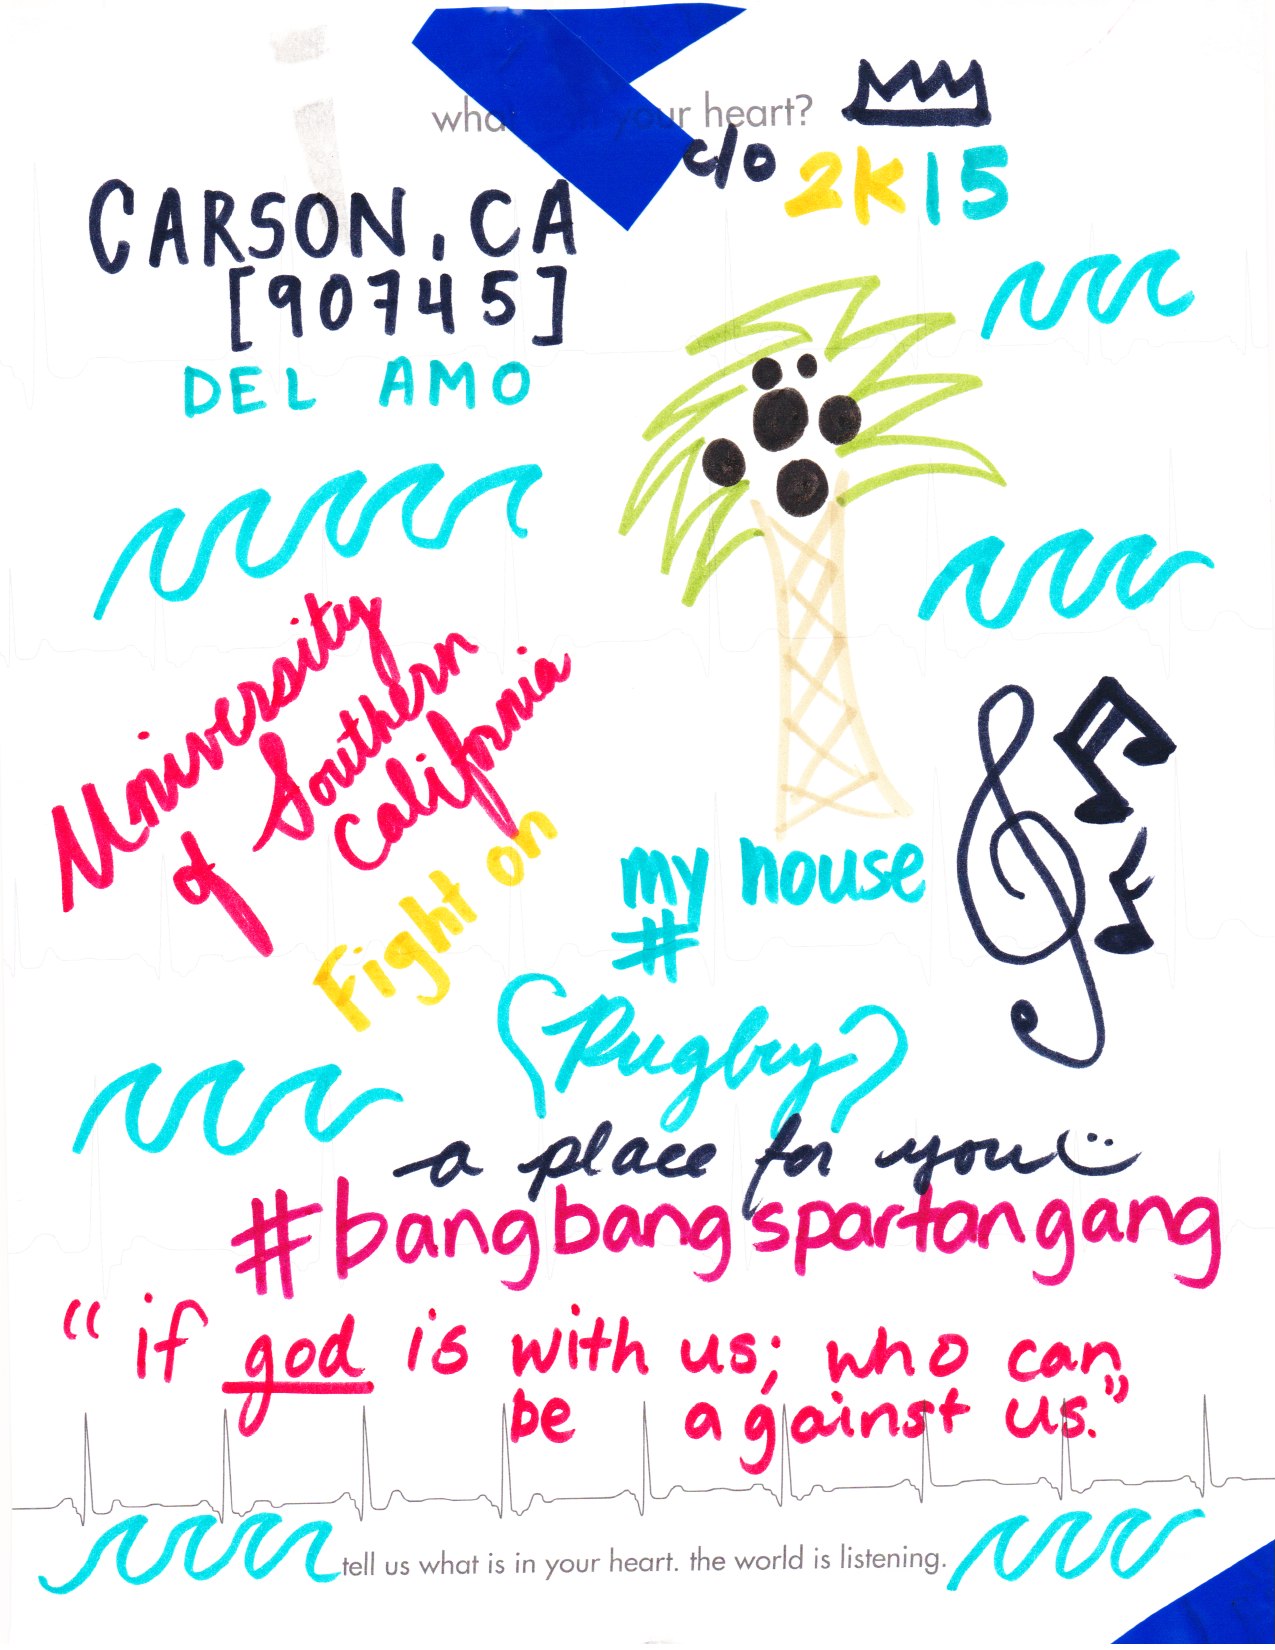 what is in your heart?
c/o 2K15
CARSON, CA
[90745]
DEL AMO
University
of Southern
California
Fight on
my house
#
Rugby
a place for you
#bangbangspartangang
"if god is with us; who can
be against us."
tell us what is in your heart. the world is listening.